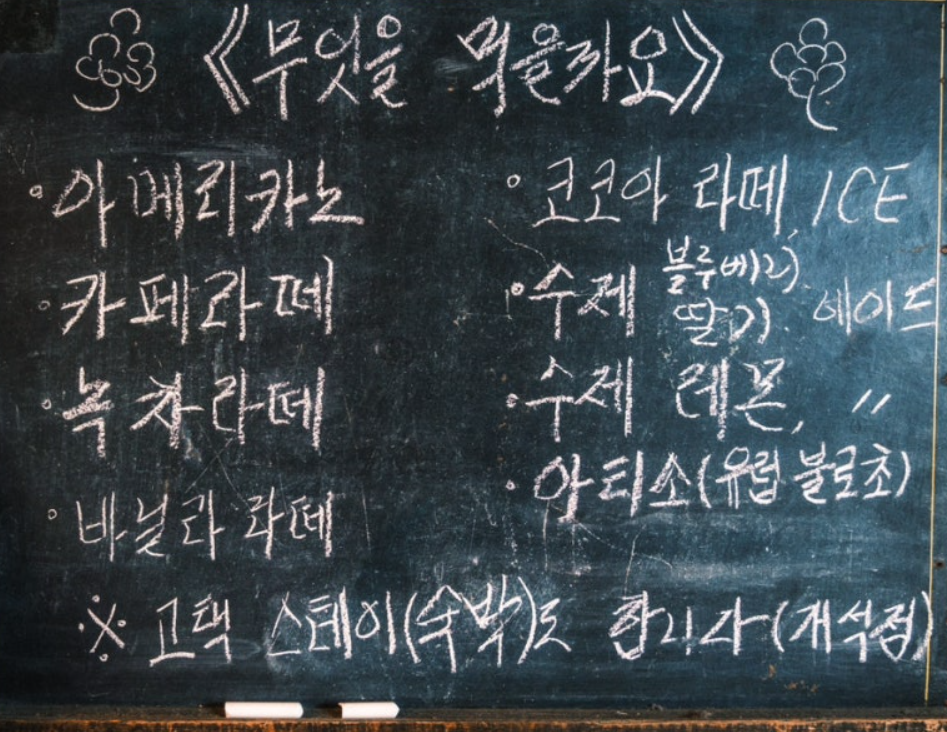 《무엇을 먹을까요》
◦ 아메리카노
◦ 카페라떼
◦ 녹차라떼
◦ 바닐라 라떼
◦ 코코아 라떼, ICE
◦ 수제 블루베리, 딸기 에이드
◦ 수제 레몬, 〃
◦ 아티소(유럽 불로초)
※ 고택 스테이(숙박)도 합니다(개석정)